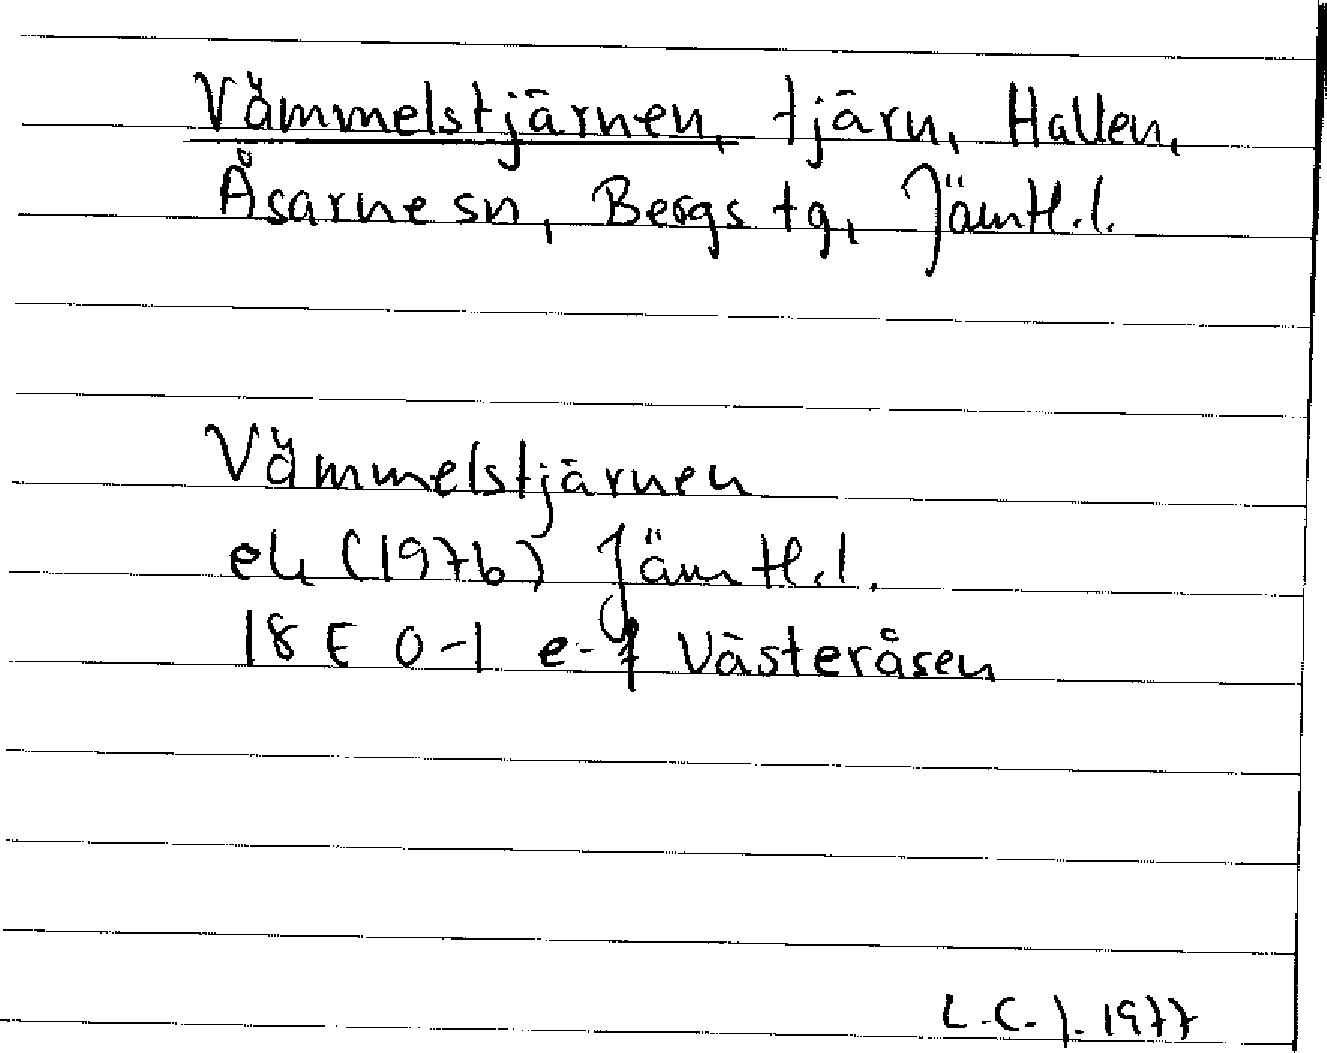 Vämmelstjärnen, tjärn, Hallen,
Åsarne sn, Bergs tg, Jämtl.l.
Vämmelstjärnen
ek (1976) Jämtl.l.
18 E 0-1 e-f Västeråsen
L.C.J. 1977